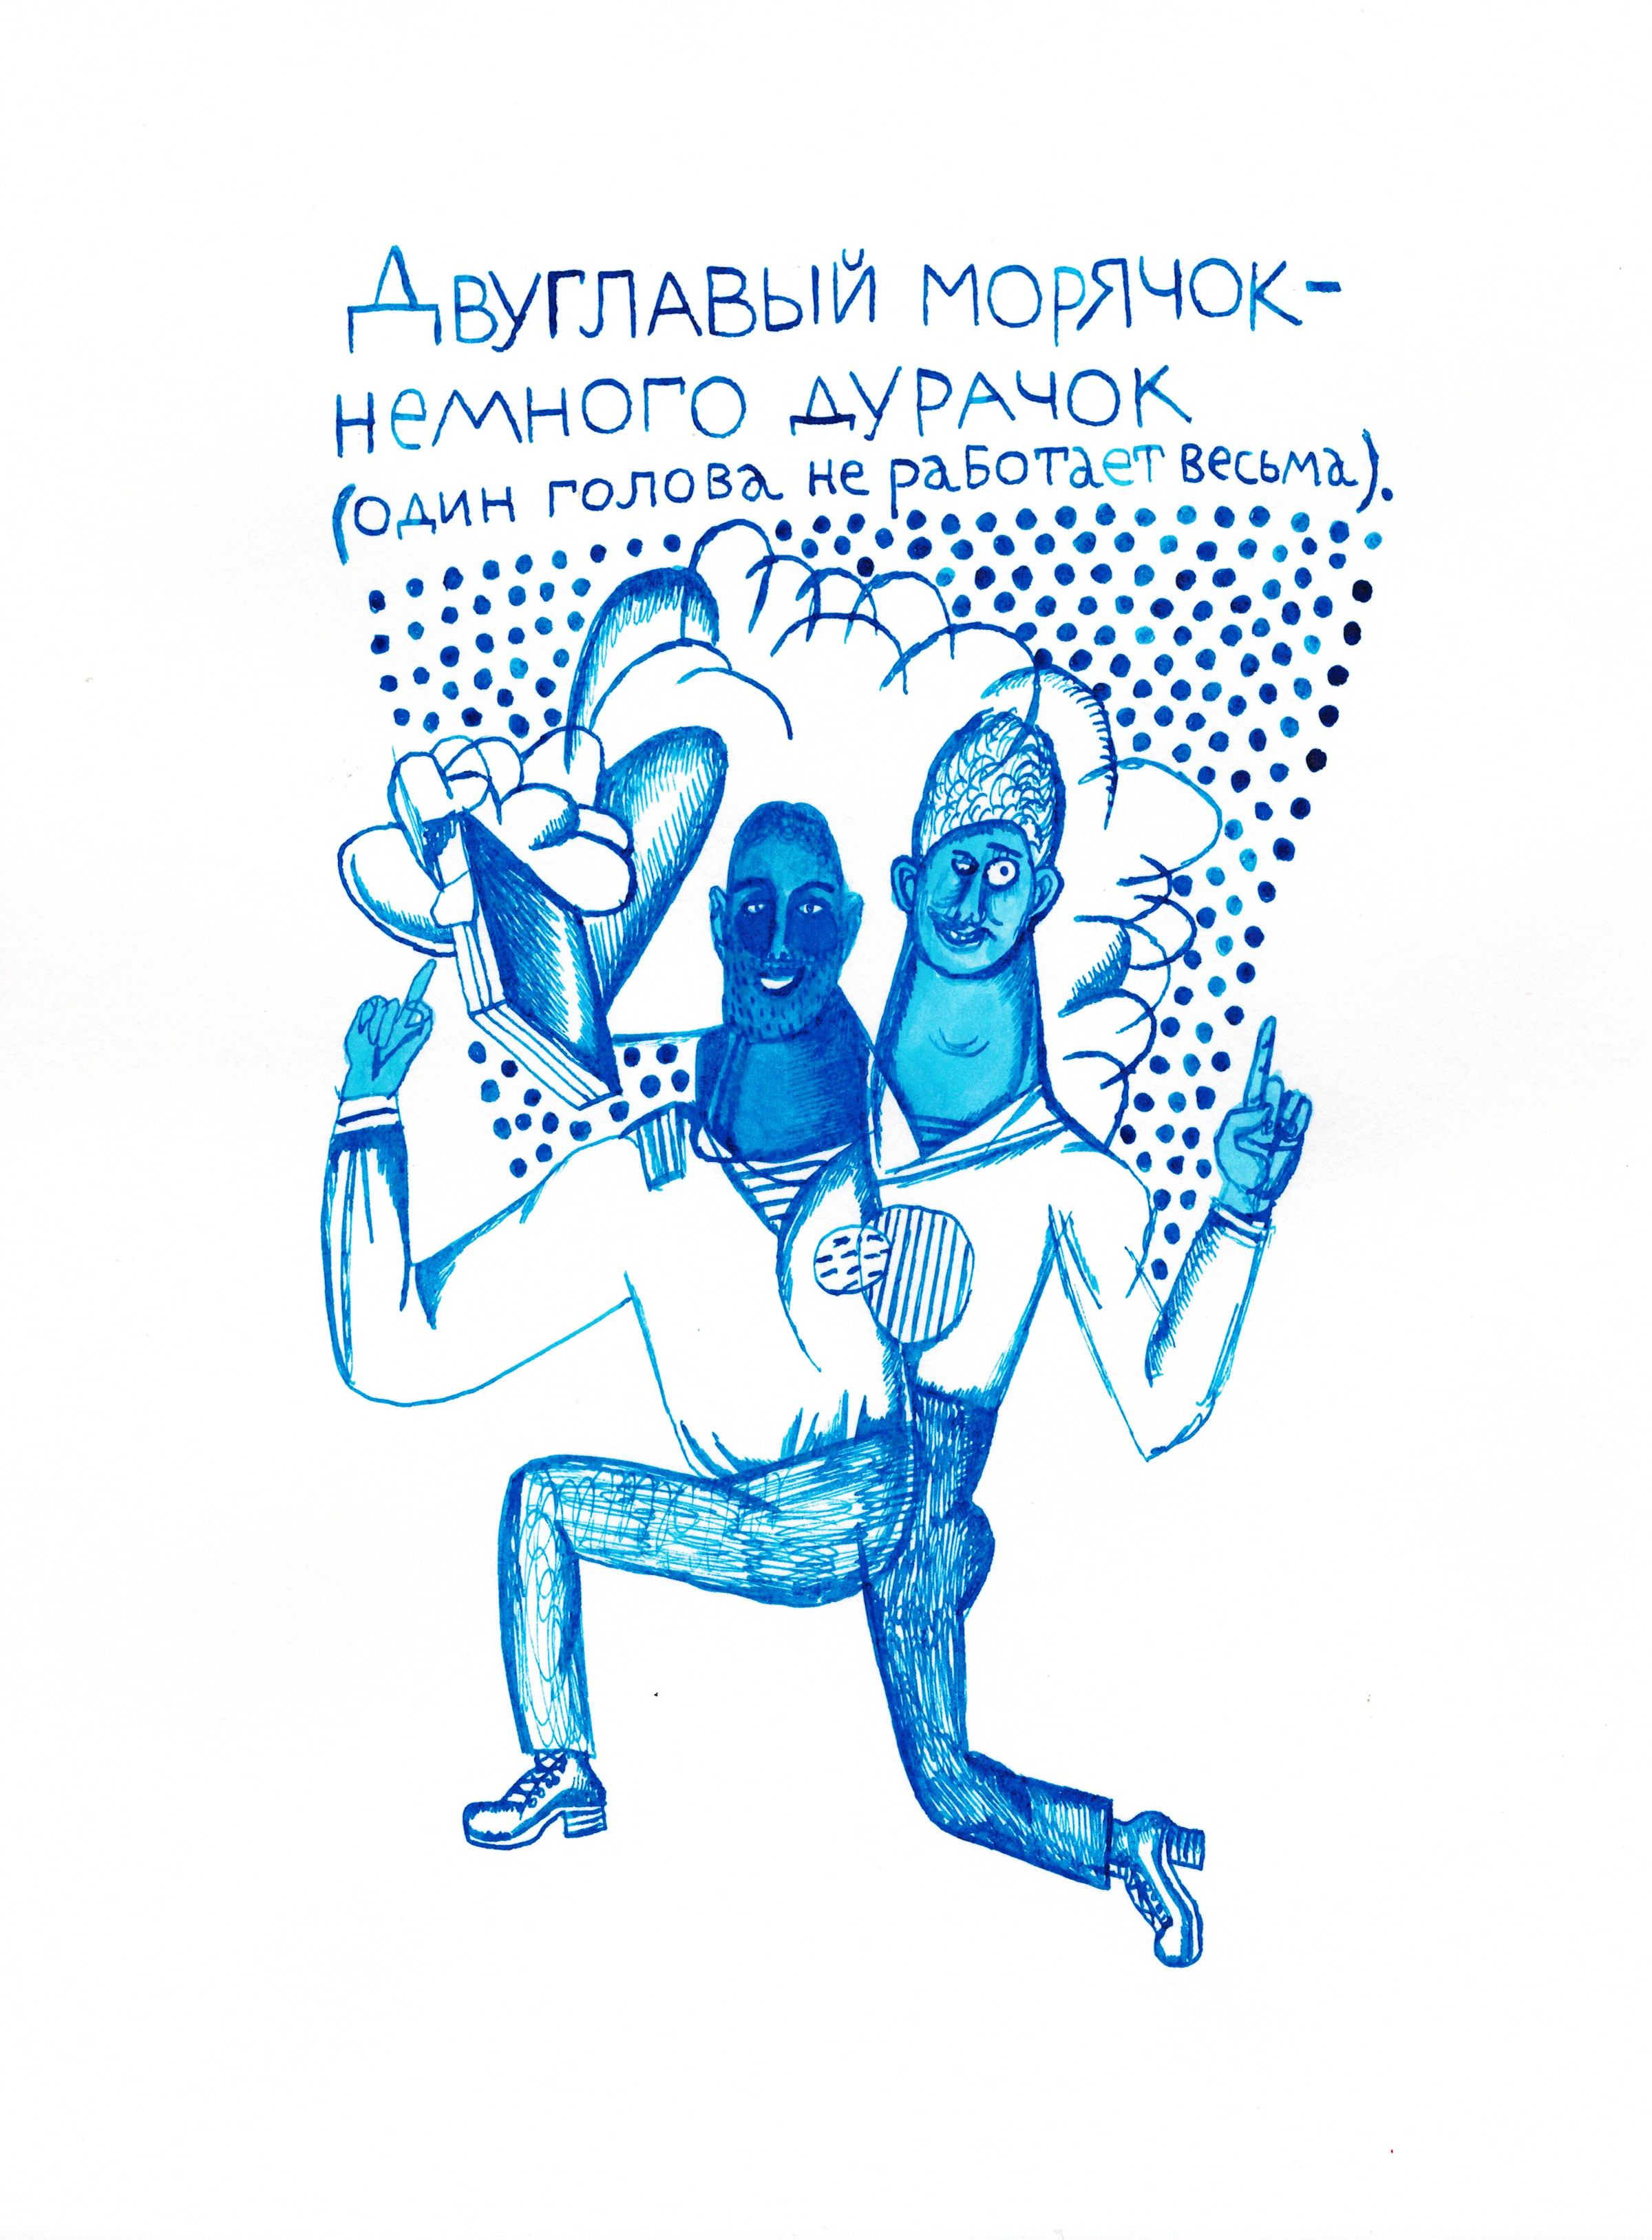 Двуглавый морячок-
немного дурачок
(один голова не работает весьма).